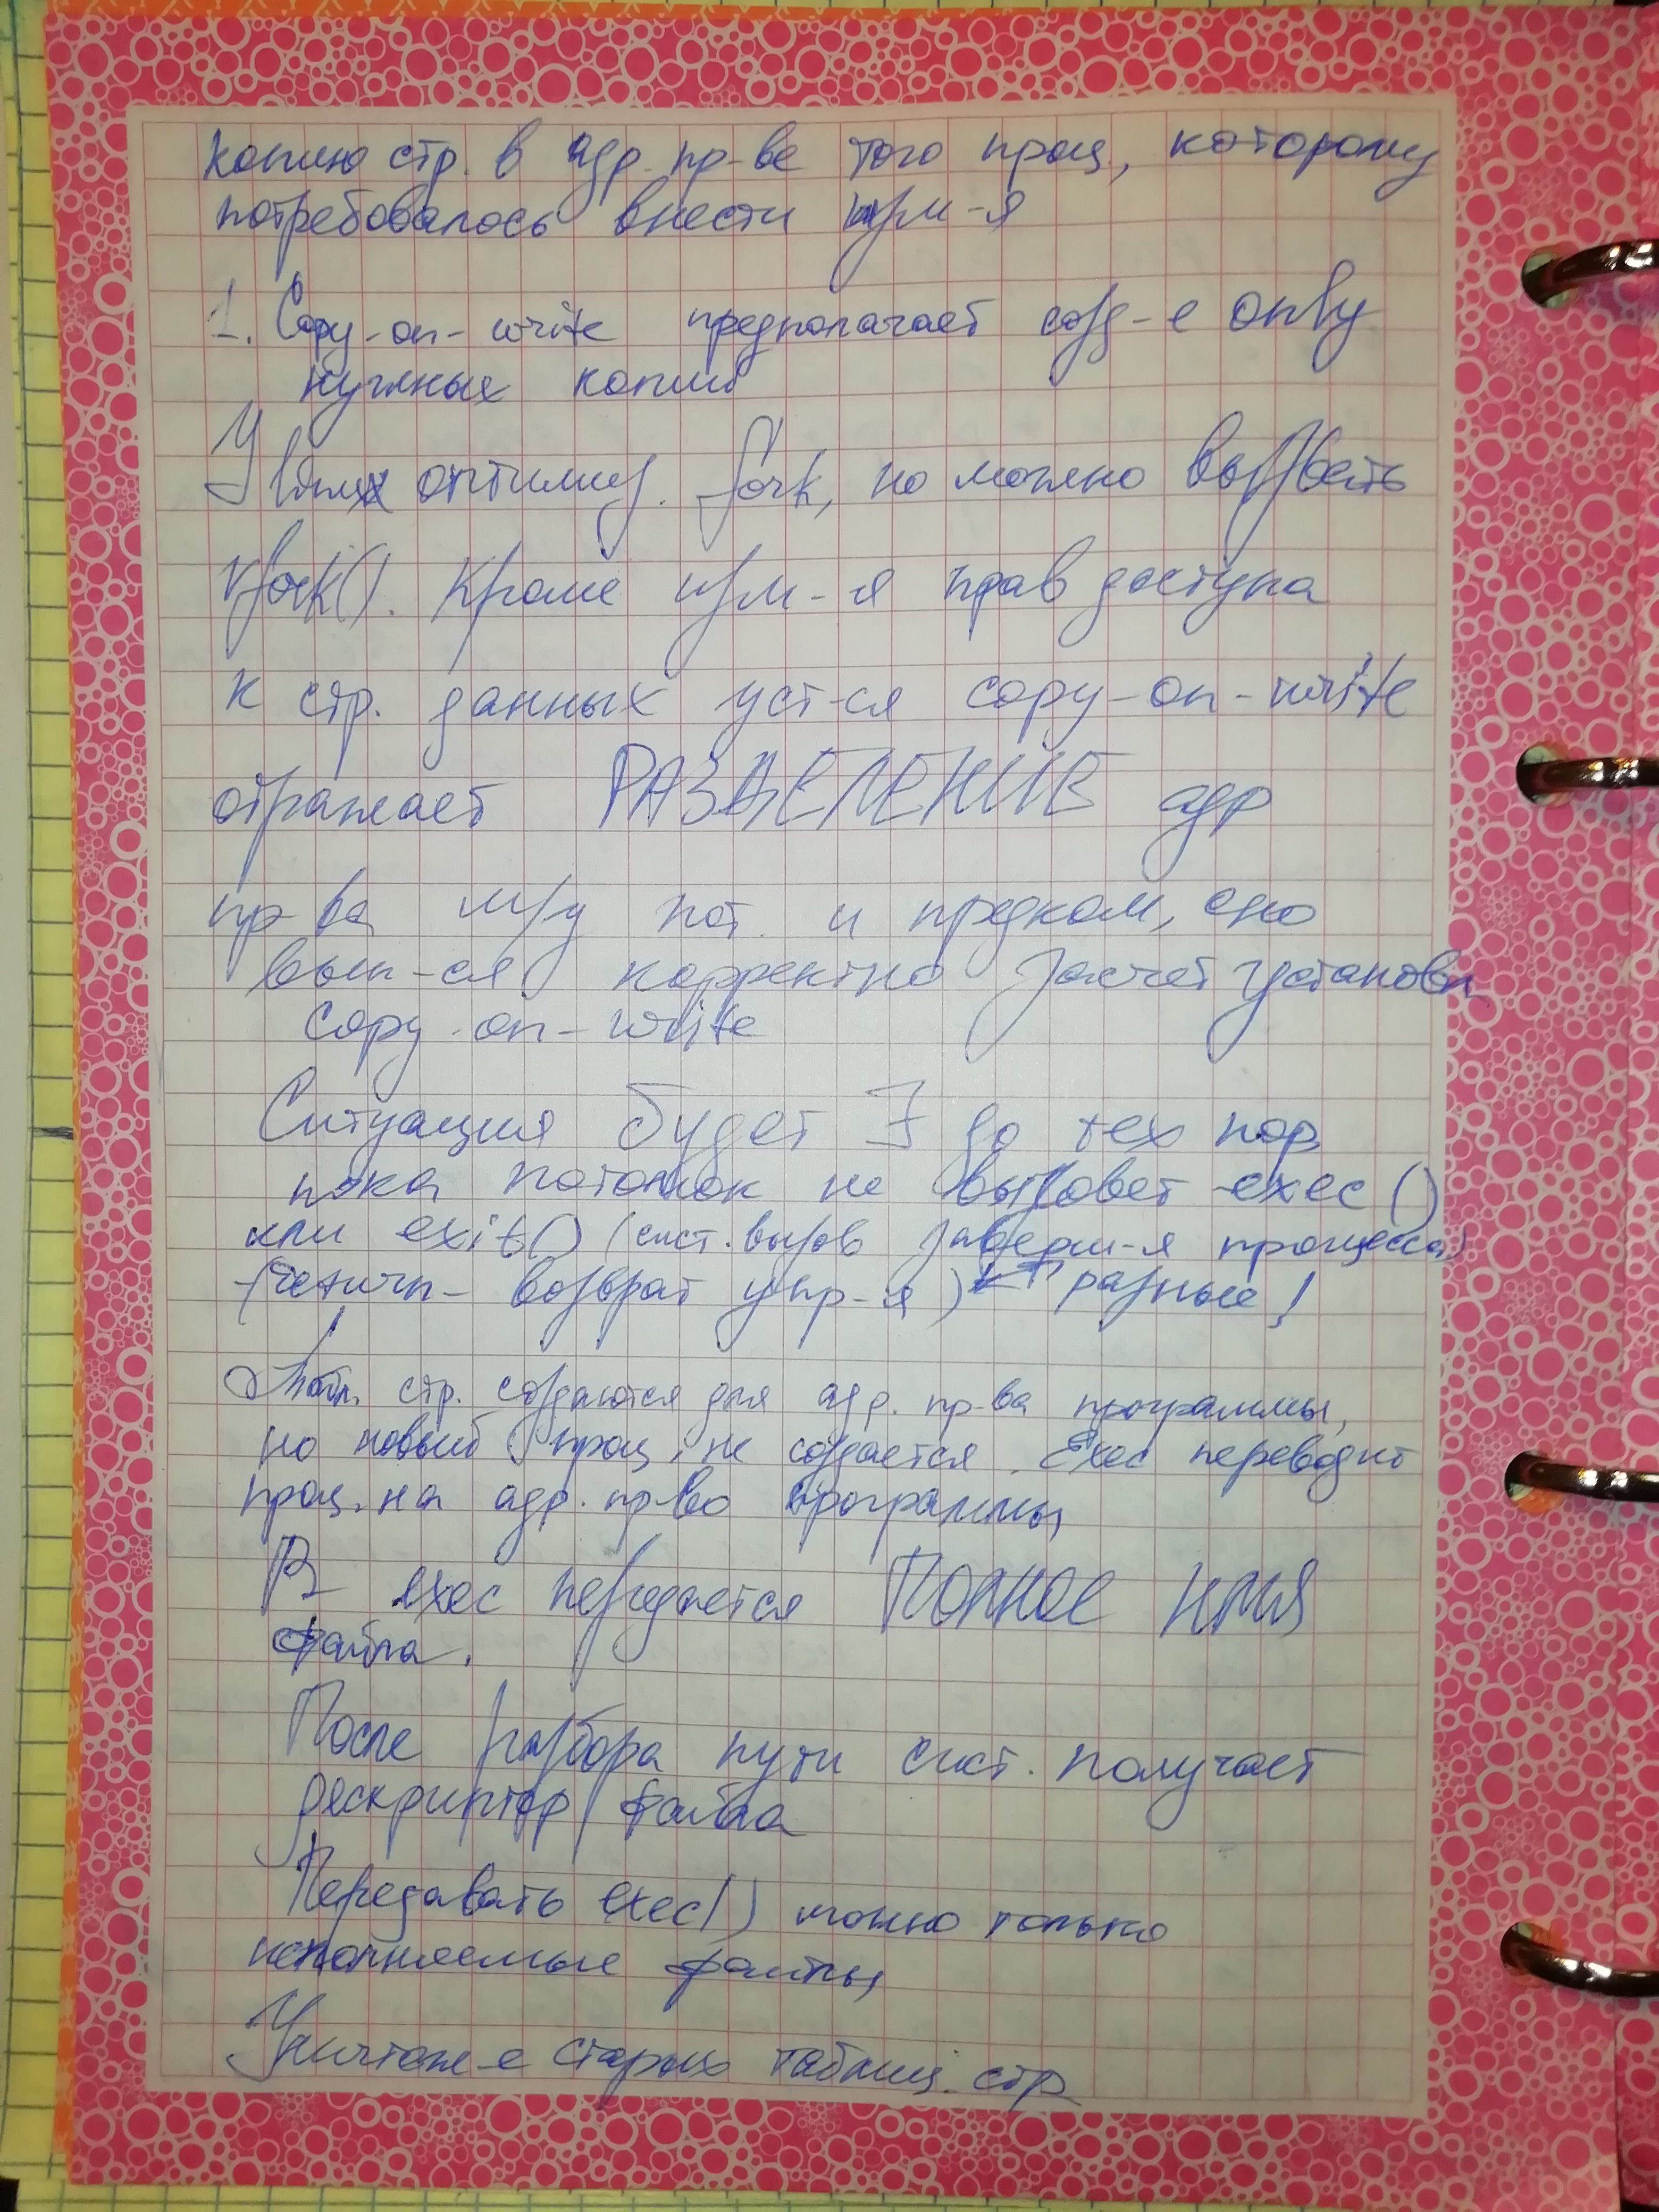 копию стр. в адр. пр-ве того проц., которому
потребовалось внести изм-я
1. Copy-on-write предполагает созд-е only
нужных копий
У оптимиз. fork, но можно вызвать
vfork(). Кроме изм-я прав доступа
к стр. данных уст-ся copy-on-write
отражает РАЗДЕЛЕНИЕ адр
пр-ва м/у пот. и предком, оно
вып-ся корректно засчет установки
copy-on-write
Ситуация будет ∃ до тех пор,
пока потомок не вызовет exec()
или exit() (сист. вызов заверш-я процесса)
возврат упр-я) разные!
Табл. стр. создаются для адр. пр-ва программы,
но новый проц. не создается. Exec переводит
проц. на адр. пр-во программы
В exec передается Полное имя
файла.
После разбора пути сист. получает
дескриптор файла
Передавать exec() можно только
исполняемые файлы
Уничтож-е старых таблиц. стр